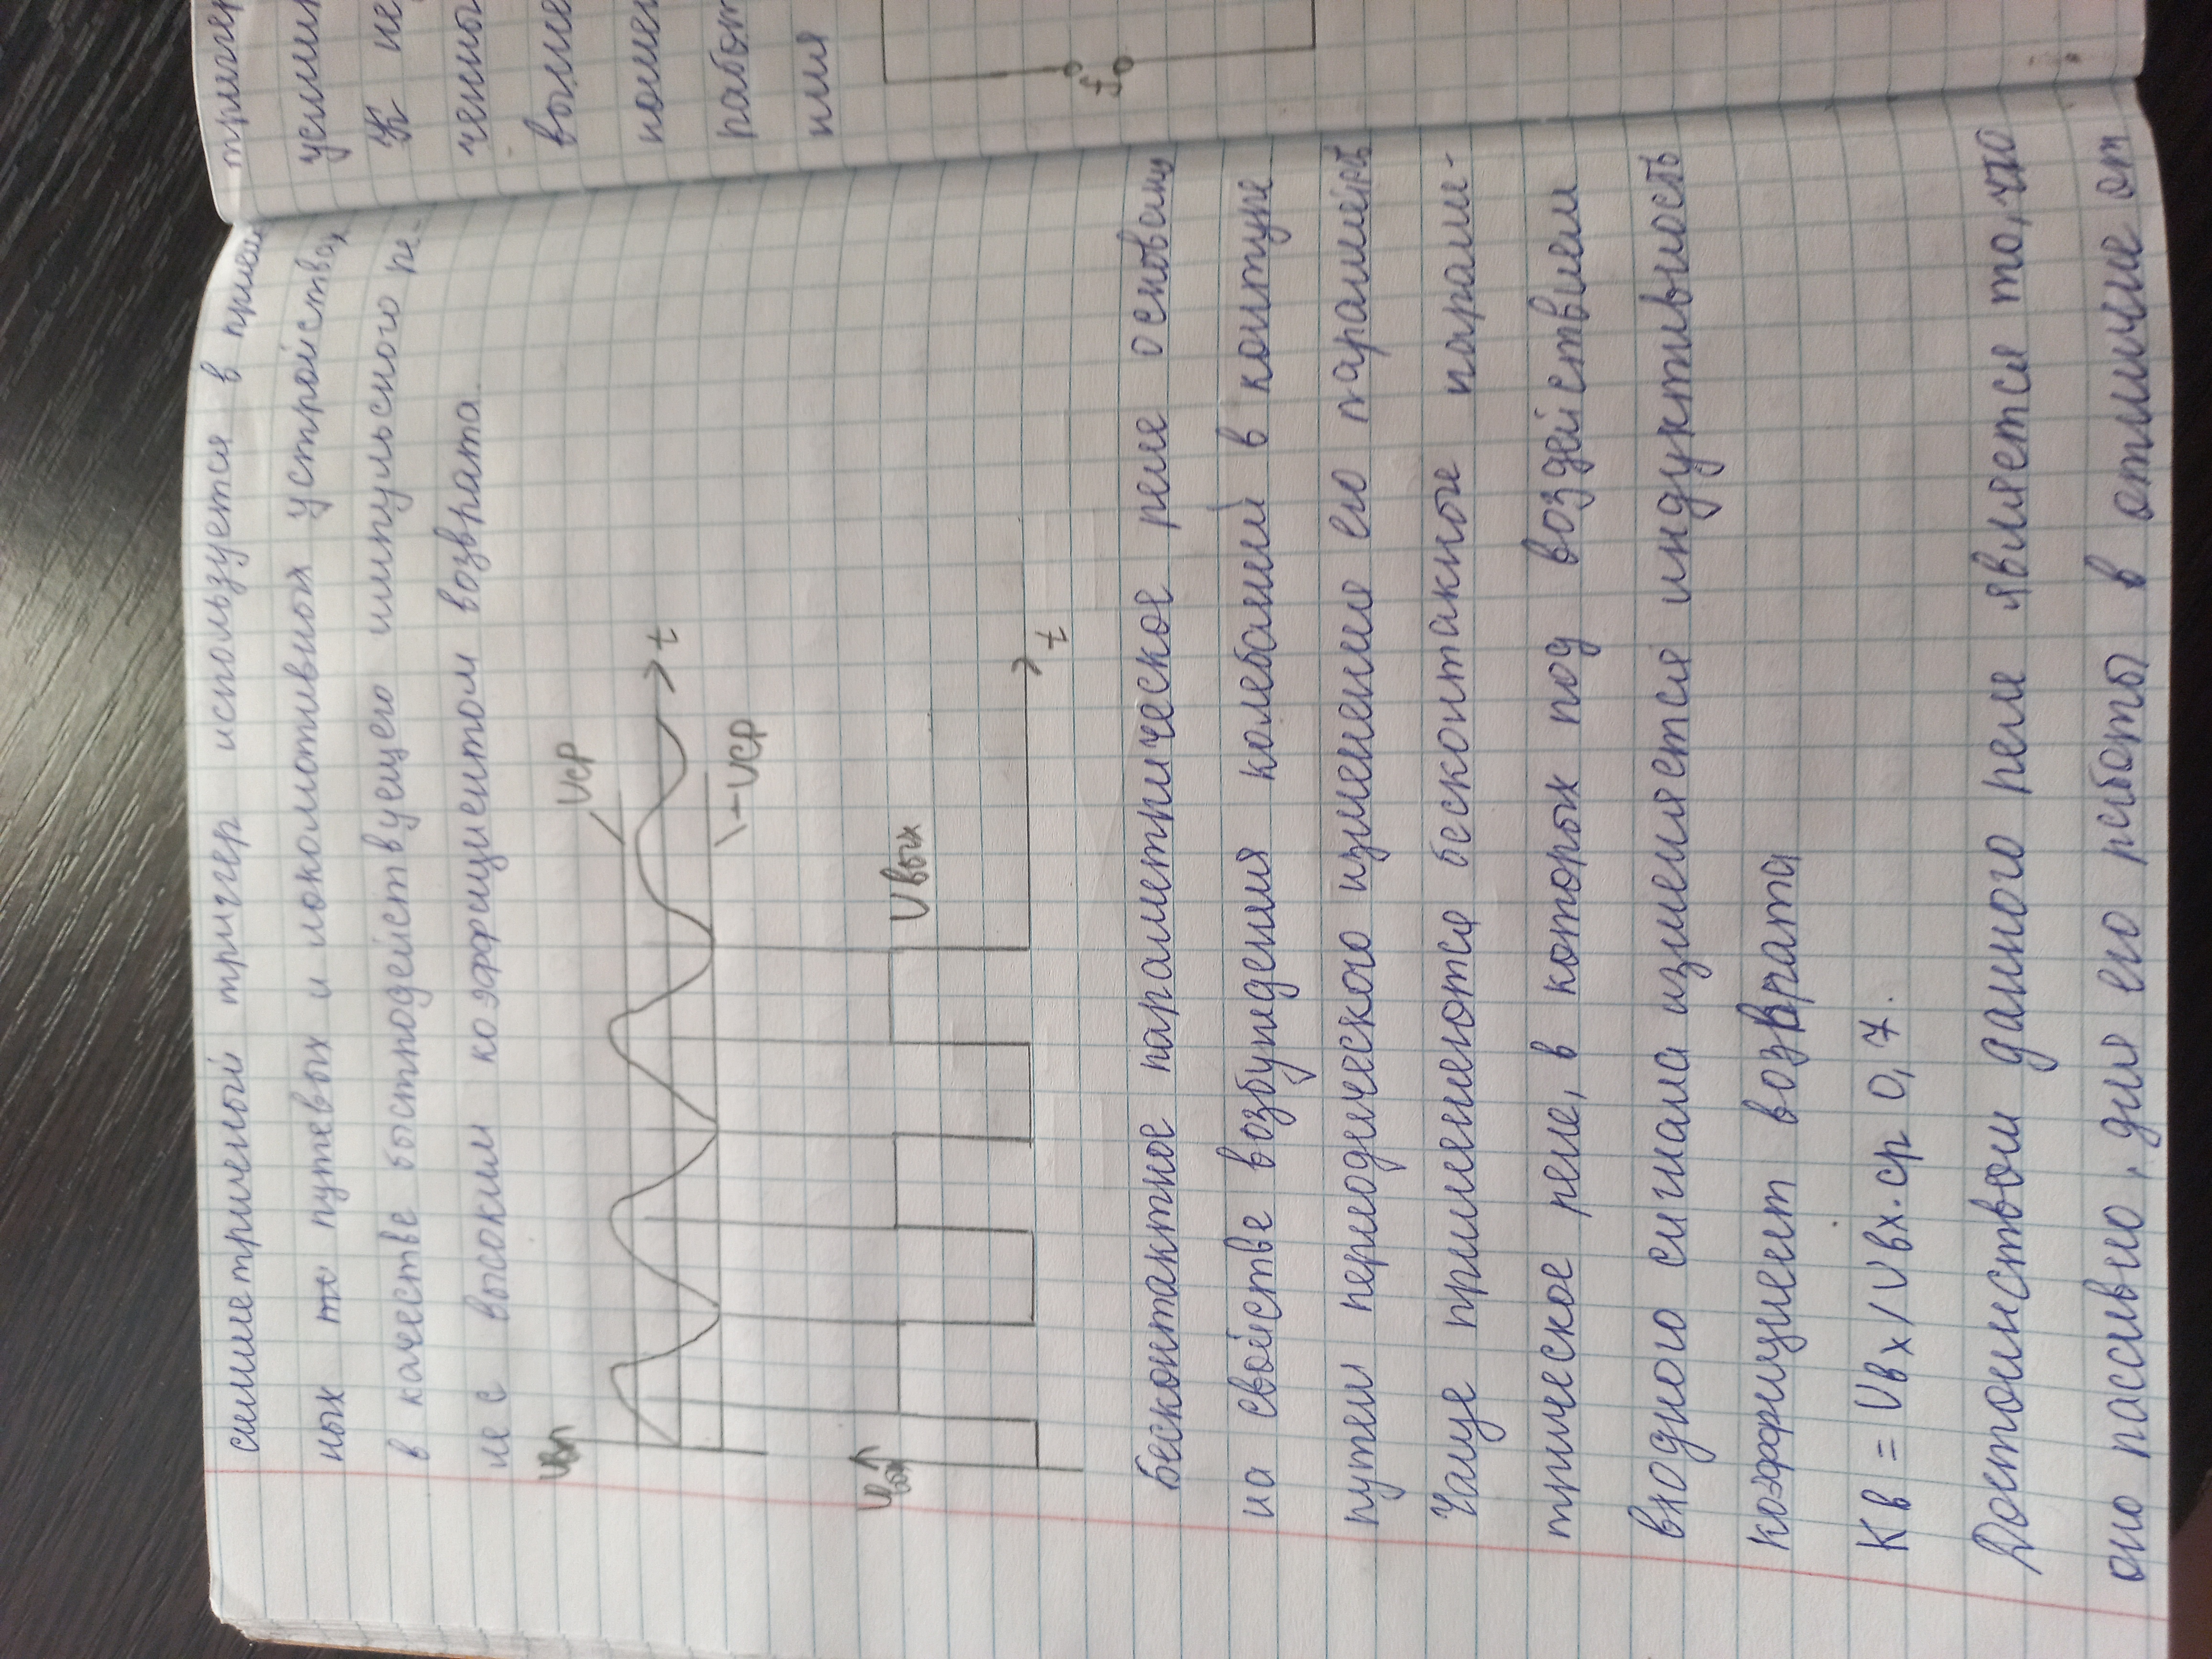 симметричный триггер используется в прием
ных же путевых и локомотивных устройствах
в качестве быстподействующего импульсного ре-
ле с высоким коэффициентом возврата.
Uвх
Uср
t
-Uср
Uвых
Uвых
t
бесконтактное параметрическое реле основаны
на свойстве возбуждения колебаний в контуре
путем периодического изменение его параметръ
Чаще применяются бесконтакные парами-
трическое реле, в которых под воздействием
входного сигнала изменяется индуктивность
коэффициент возврата
Кв = Uвх/Uвх.ср 0,7.
Достоинством данного реле является то, что
оно пассивно, для его работы в отличие от
триггер
усилит
К не
ченны
выше
номен
работ
ния